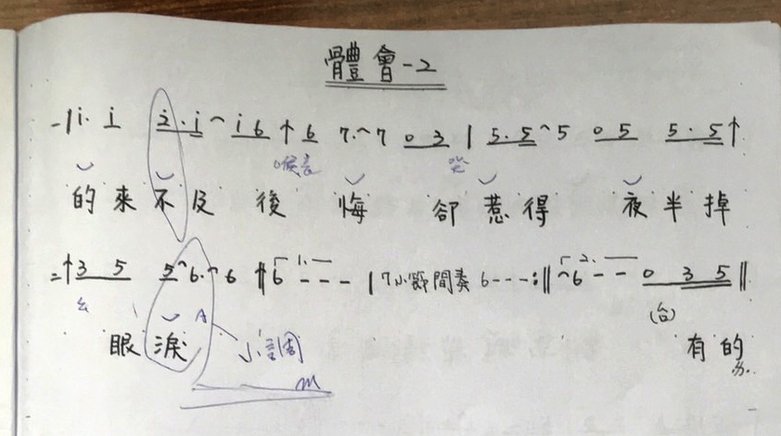 體會-2
i· i 2·i⌢i6↑6 7·⌢7 0 3 | 5·5⌢5 0 5 5·5↑
的來不及後悔 卻惹得 夜半掉
↑3 5 5⌢6·⌢6 6 - - - | 7小節間奏 6 - - - :‖⌢6 - - 0 3 5‖
(台)
眼淚 小調 有的